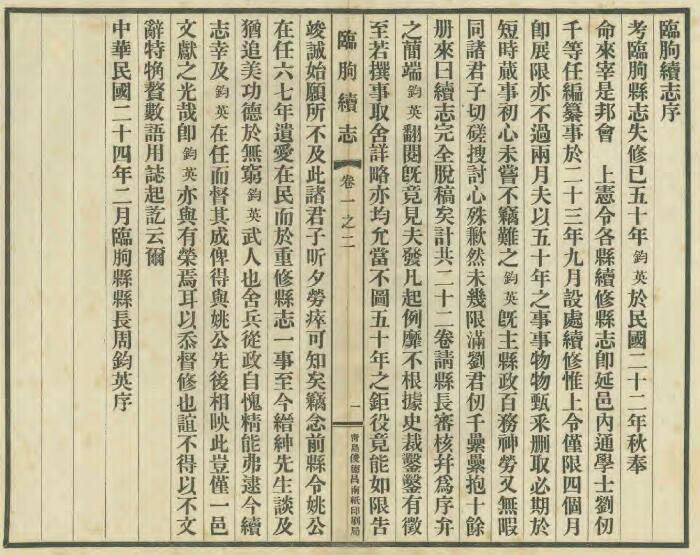 臨朐續志序
考臨朐縣志失修已五十年鈞英於民國二十二年秋奉
命來宰是邦會　上憲令各縣續修縣志卽延邑內通學士劉仞
千等任編纂事於二十三年九月設處續修惟上令僅限四個月
卽展限亦不過兩月夫以五十年之事事物物甄采删取必期於
短時蕆事初心未嘗不竊難之鈞英旣主縣政百務神勞又無暇
同諸君子切磋搜討心殊歉然未幾限滿劉君仞千纍纍抱十餘
册來曰續志完全脫稿矣計共二十二卷請縣長審核幷爲序弁
之簡端鈞英翻閱旣竟見夫發凡起例靡不根據史裁鑿鑿有徵
至若撰事取舍詳略亦均允當不圖五十年之鉅役竟能如限告
臨朐續志
卷一之二
一
靑島俊德昌南紙印刷局
竣誠始願所不及此諸君子昕夕勞瘁可知矣竊念前縣令姚公
在任六七年遺愛在民而於重修縣志一事至今縉紳先生談及
猶追美功德於無窮鈞英武人也舍兵從政自愧精能弗逮今續
志幸及鈞英在任而督其成俾得與姚公先後相映此豈僅一邑
文獻之光哉卽鈞英亦與有榮焉耳以忝督修也誼不得以不文
辭特犓贅數語用誌起訖云爾
中華民國二十四年二月臨朐縣縣長周鈞英序